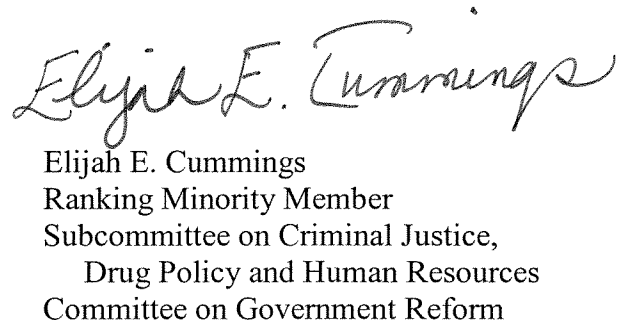 Elijah E. Cummings
Elijah E. Cummings
Ranking Minority Member
Subcommittee on Criminal Justice,
Drug Policy and Human Resources
Committee on Government Reform